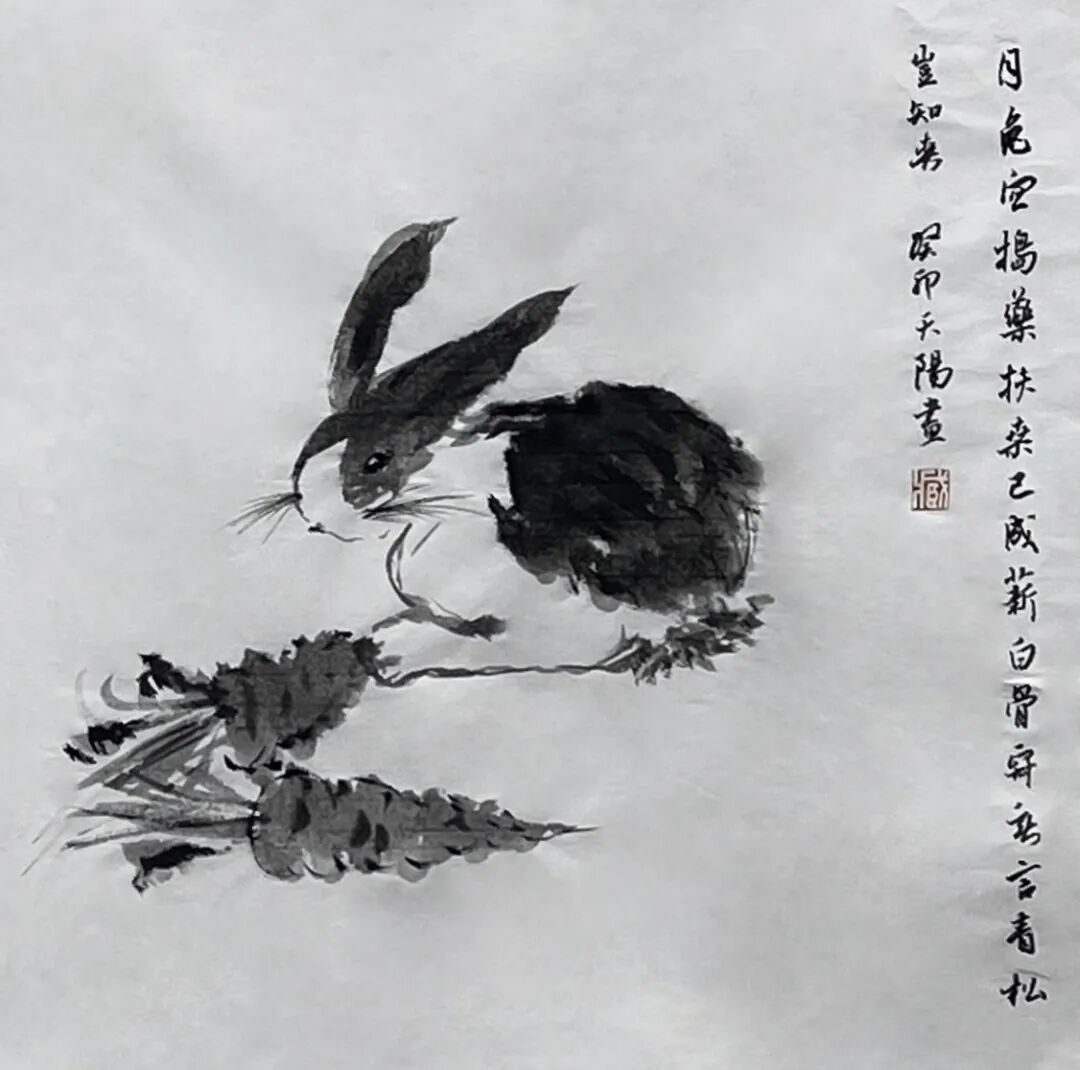 月兔空捣藥扶桑已成薪白骨寂無言青松
豈知春 癸卯天陽畫
臧